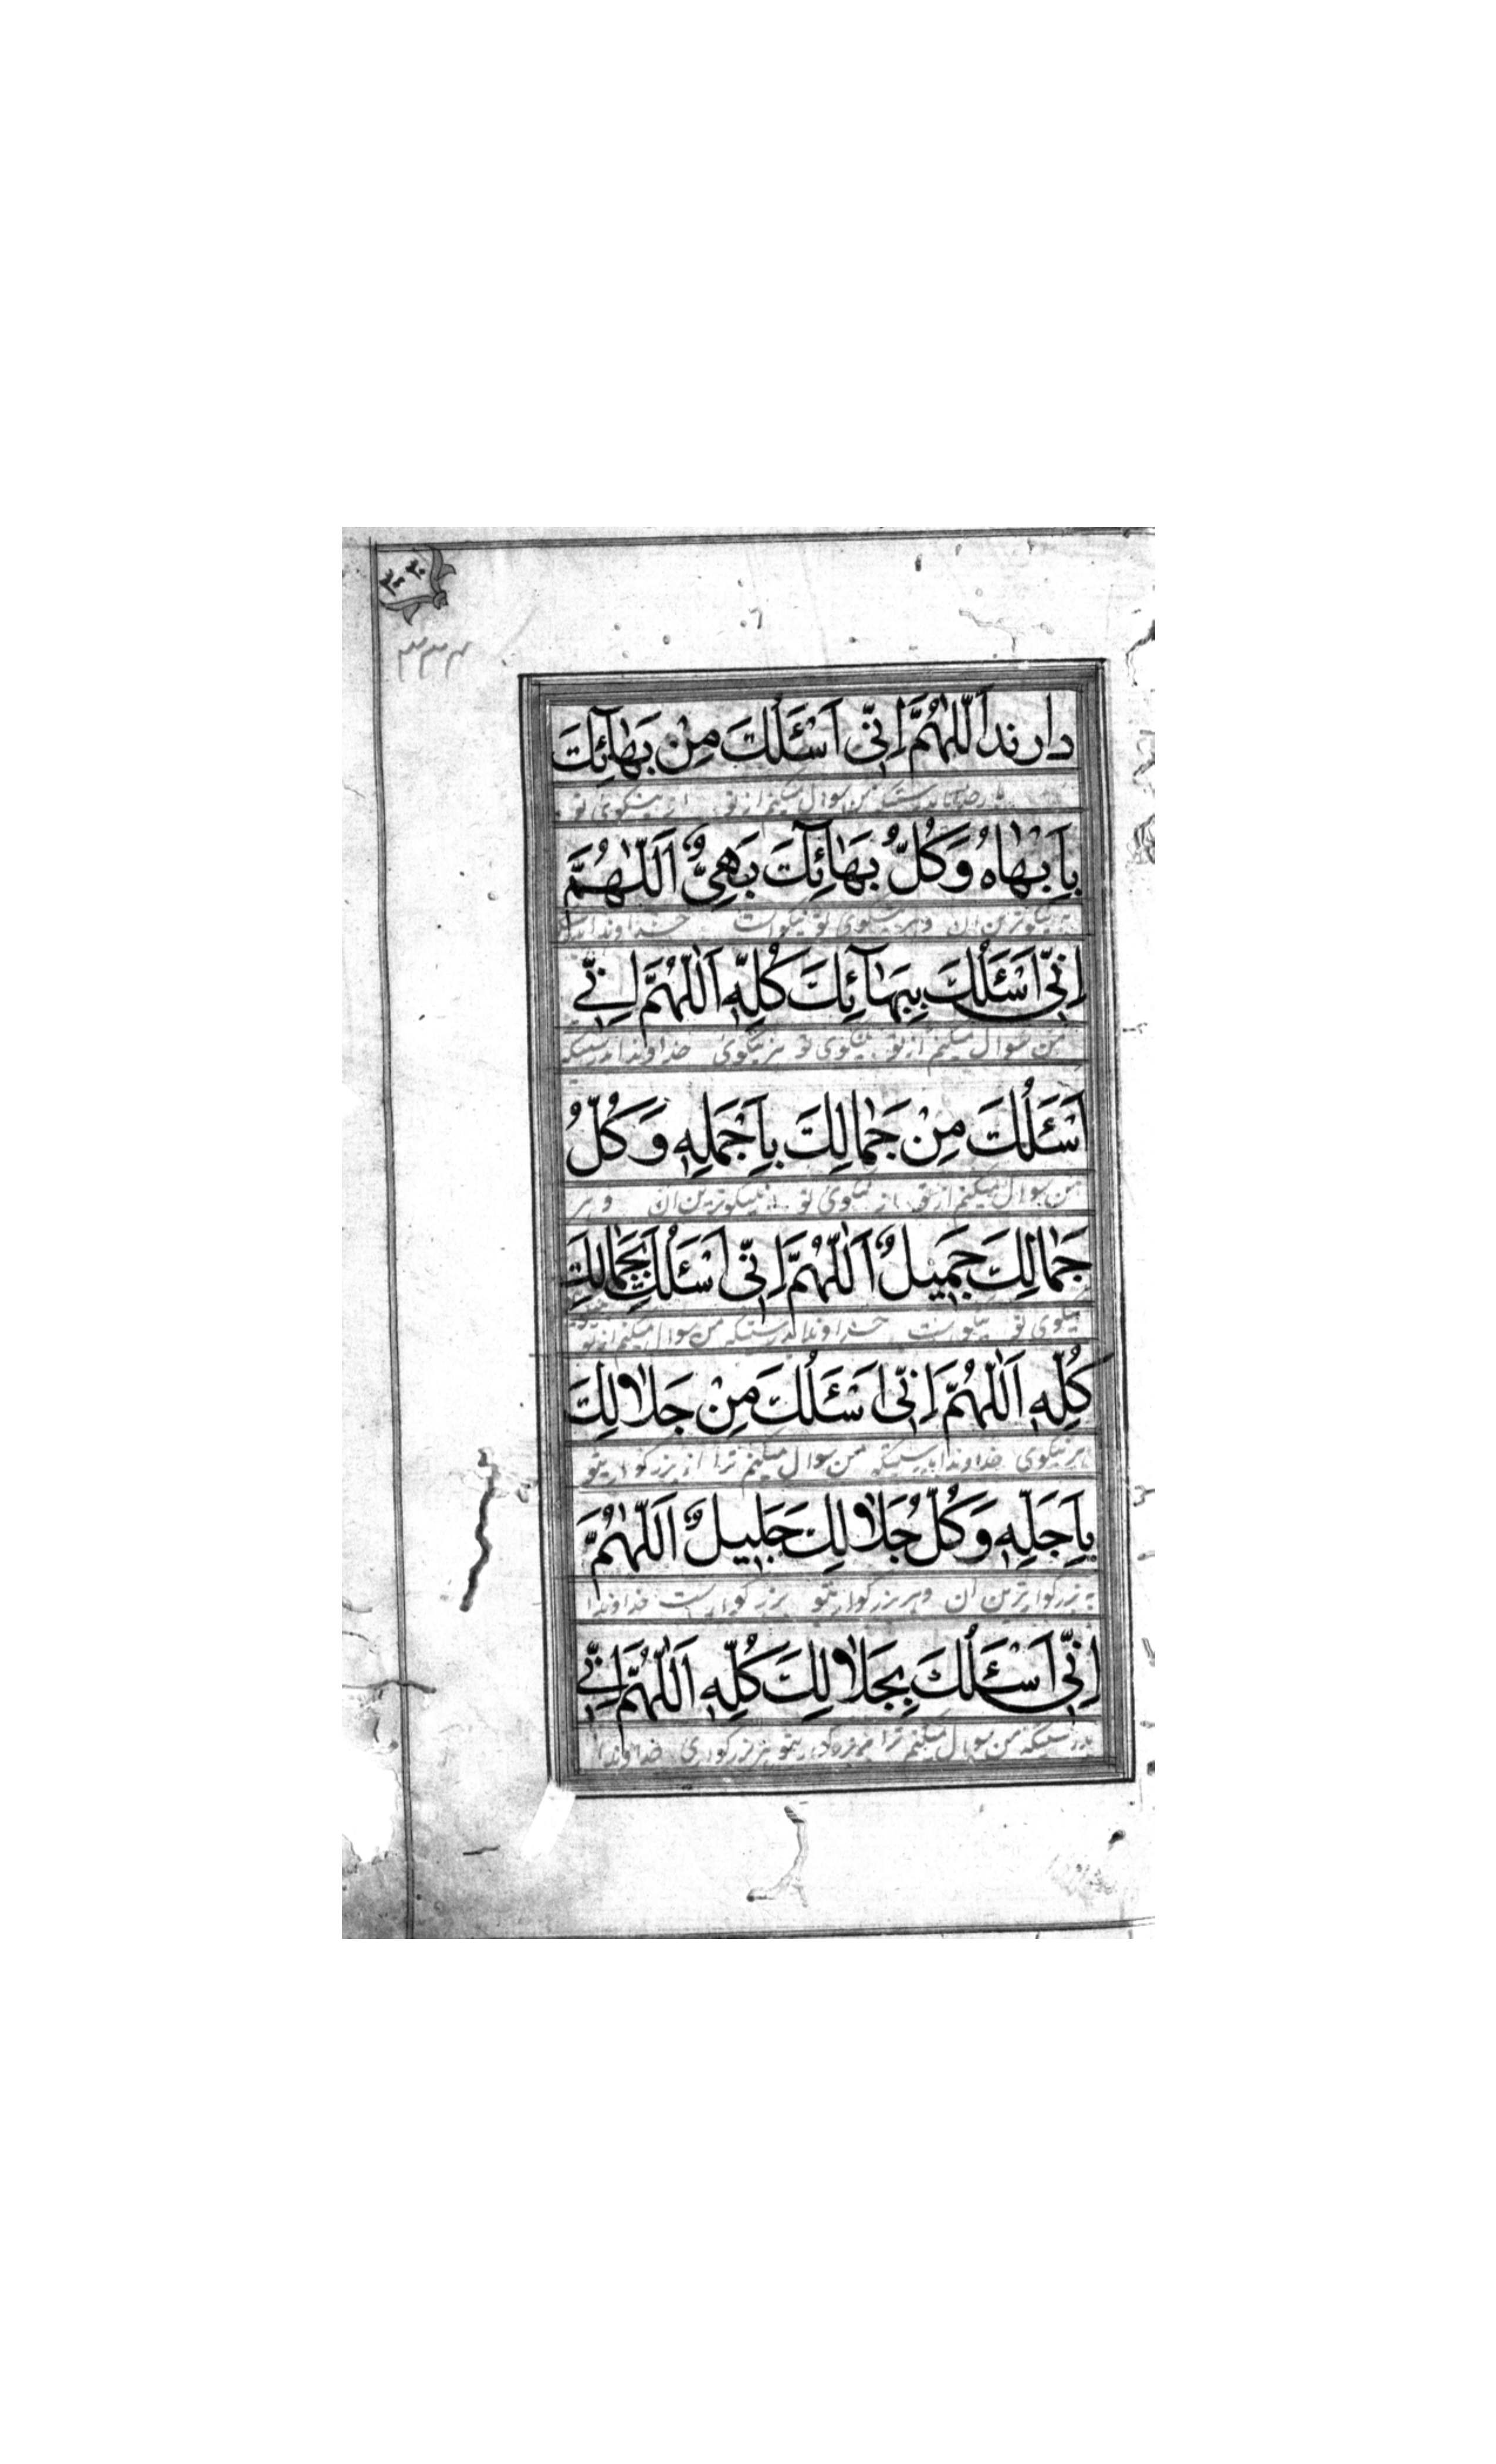 ۳۳۴
دارند اَللّٰهُمَّ اِنّی اَسْئَلُكَ مِنْ بَهٰآئِكَ
بدرستیکه من سوال میکنم از تو از نیکوی تو
بِاَبْهٰاهُ وَكُلُّ بَهٰآئِكَ بَهِیٌّ اَللّٰهُمَّ
به نیکوترین آن وهر نیکوی تو نیکواست خداوندا
اِنّی اَسْئَلُكَ بِبَهٰآئِكَ كُلِّهِ اَللّٰهُمَّ اِنّی
من سوال میکنم از تو بنیکوی تو هر نیکوی خداوندا بدرستیکه
اَسْئَلُكَ مِنْ جَمٰالِكَ بِاَجْمَلِهِ وَكُلُّ
من سوال میکنم از تو از نیکوی تو به نیکوترین آن وهر
جَمٰالِكَ جَمِیلٌ اَللّٰهُمَّ اِنّی اَسْئَلُكَ بِجَمٰالِكَ
نیکوی تو نیکوست خداوندا بدرستیکه من سوال میکنم از تو
كُلِّهِ اَللّٰهُمَّ اِنّی اَسْئَلُكَ مِنْ جَلاٰلِكَ
هر نیکوی خداوندا بدرستیکه من سوال میکنم ترا از بزرکواریتو
بِاَجَلِّهِ وَكُلُّ جَلاٰلِكَ جَلِیلٌ اَللّٰهُمَّ
به بزرکوارترین آن وهر بزرکواریتو بزرکوارست خداوندا
اِنّی اَسْئَلُكَ بِجَلاٰلِكَ كُلِّهِ اَللّٰهُمَّ اِنّی
بدرستیکه من سوال میکنم ترا هر بزرکواری خداوندا